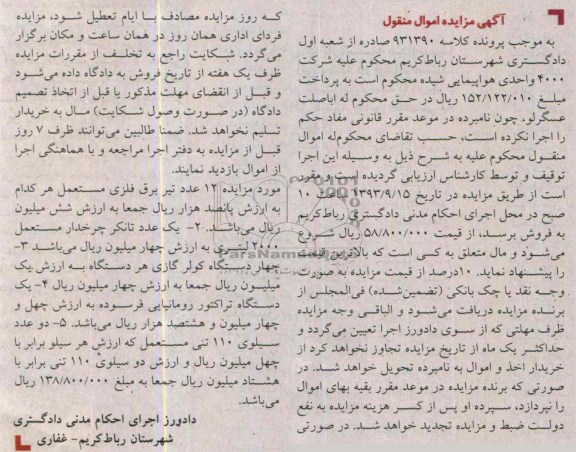 آگهی مزایده اموال منقول
به موجب پرونده کلاسه ۹۳۱۳۹۰ صادره از شعبه اول
دادگستری شهرستان رباط‌کریم محکوم علیه شرکت
۴۰۰۰ واحدی هواپیمایی شیده محکوم است به پرداخت
مبلغ ۱۵۲/۱۲۲/۰۱۰ ریال در حق محکوم له اباصلت
عسگرلو، چون نامبرده در موعد مقرر قانونی مفاد حکم
را اجرا نکرده است، حسب تقاضای محکوم‌له اموال
منقول محکوم علیه به شرح ذیل به وسیله این اجرا
توقیف و توسط کارشناس ارزیابی گردیده است و مقرر
است از طریق مزایده در تاریخ ۱۳۹۳/۹/۱۵ ساعت ۱۰
صبح در محل اجرای احکام مدنی دادگستری رباط‌کریم
به فروش برسد، از قیمت ۵۸/۸۰۰/۰۰۰ ریال شروع
می‌شود و مال متعلق به کسی است که بالاترین قیمت
را پیشنهاد نماید. ۱۰درصد از قیمت مزایده به صورت
وجه نقد یا چک بانکی (تضمین‌شده) فی‌المجلس از
برنده مزایده دریافت می‌شود و الباقی وجه مزایده
ظرف مهلتی که از سوی دادورز اجرا تعیین می‌گردد و
حداکثر یک ماه از تاریخ مزایده تجاوز نخواهد کرد از
خریدار اخذ و اموال به نامبرده تحویل خواهد شد. در
صورتی که برنده مزایده در موعد مقرر بقیه بهای اموال
را نپردازد، سپرده او پس از کسر هزینه مزایده به نفع
دولت ضبط و مزایده تجدید خواهد شد. در صورتی
که روز مزایده مصادف با ایام تعطیل شود، مزایده
فردای اداری همان روز در همان ساعت و مکان برگزار
می‌گردد. شکایت راجع به تخلف از مقررات مزایده
ظرف یک هفته از تاریخ فروش به دادگاه داده می‌شود
و قبل از انقضای مهلت مذکور یا قبل از اتخاذ تصمیم
دادگاه (در صورت وصول شکایت) مال به خریدار
تسلیم نخواهد شد. ضمنا طالبین می‌توانند ظرف ۷ روز
قبل از مزایده به دفتر اجرا مراجعه و با هماهنگی اجرا
از اموال بازدید نمایند.
مورد مزایده ۱۲ عدد تیر برق فلزی مستعمل هر کدام
به ارزش پانصد هزار ریال جمعا به ارزش شش میلیون
ریال می‌باشد. ۲- یک عدد تانکر چرخدار مستعمل
۲۰۰۰ لیتری به ارزش چهار میلیون ریال می‌باشد ۳-
چهار دستگاه کولر گازی هر دستگاه به ارزش یک
میلیون ریال جمعا به ارزش چهار میلیون ریال ۴- یک
دستگاه تراکتور رومانیایی فرسوده به ارزش چهل و
چهار میلیون و هشتصد هزار ریال می‌باشد. ۵- دو عدد
سیلوی ۱۱۰ تنی مستعمل که ارزش هر سیلو برابر با
چهل میلیون ریال و ارزش دو سیلوی ۱۱۰ تنی برابر با
هشتاد میلیون ریال جمعا به مبلغ ۱۳۸/۸۰۰/۰۰۰ ریال
می‌باشد.
دادورز اجرای احکام مدنی دادگستری
شهرستان رباط‌کریم- غفاری